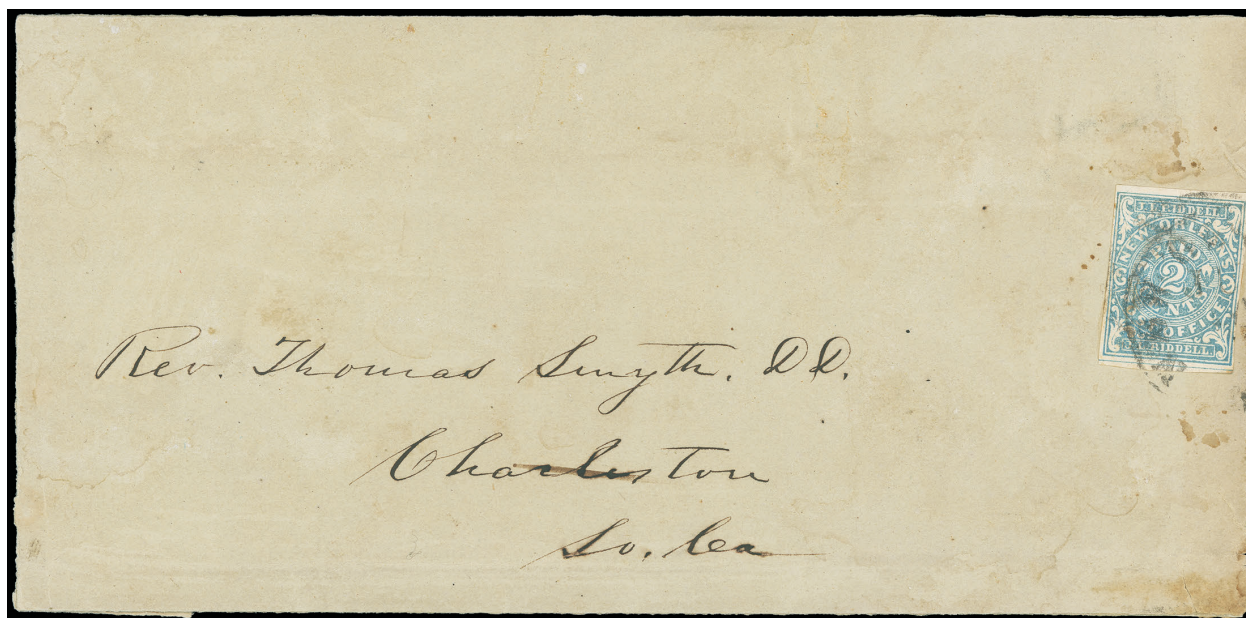 J.L. RIDDELL.
NEW ORLEANS
2
CENTS
OFFICE
RIDDELL.
Rev. Thomas Smyth. D.D.
Charleston
So. Ca